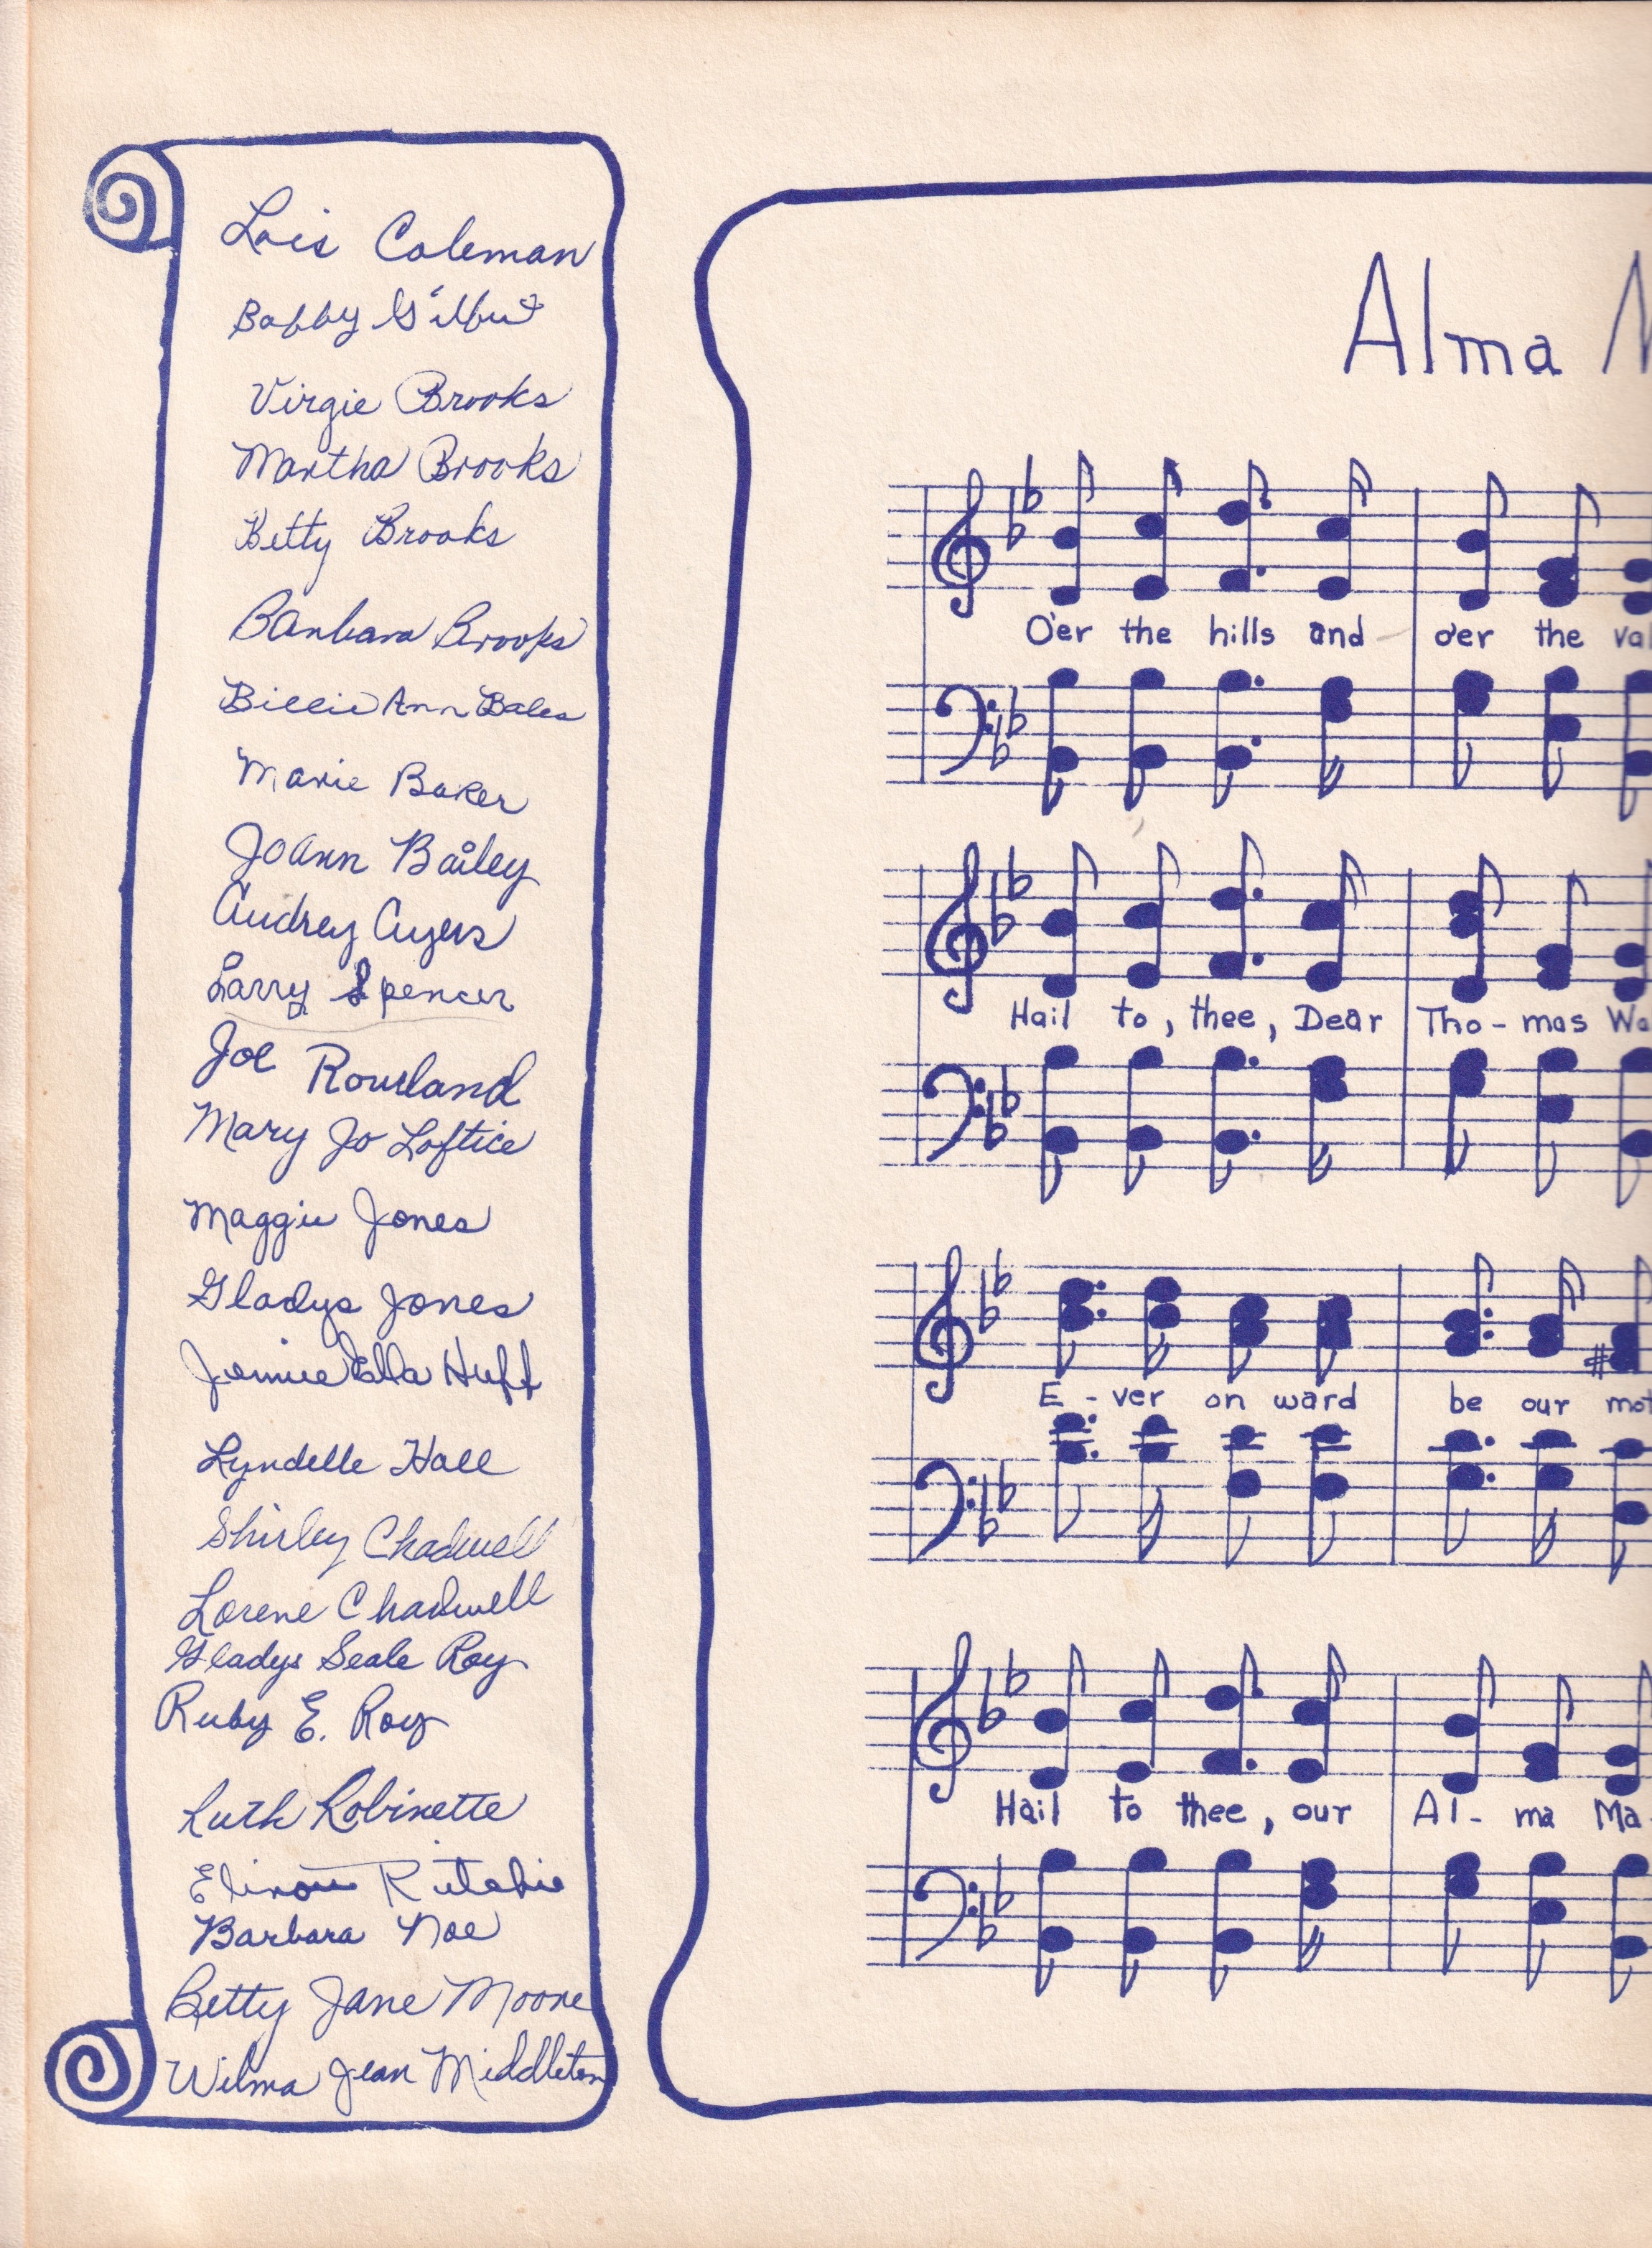 Lois Coleman
Bobby Gilbert
Virgie Brooks
Martha Brooks
Betty Brooks
Barbara Brooks
Billie Ann Bales
Marie Baker
JoAnn Bailey
Audrey Ayers
Larry Spencer
Joe Rowland
Mary Jo Loftice
Maggie Jones
Gladys Jones
Jennie Ella Huff
Lyndelle Hall
Shirley Chadwell
Lorene Chadwell
Gladys Seale Roy
Ruby E. Roy
Ruth Robinette
Elinor Ritchie
Barbara Noe
Betty Jane Moore
Wilma Jean Middleton
Alma M
O'er the hills and o'er the val
Hail to, thee, Dear Tho-mas Wa
E-ver on ward be our mot
Hail to thee, our Al-ma Ma